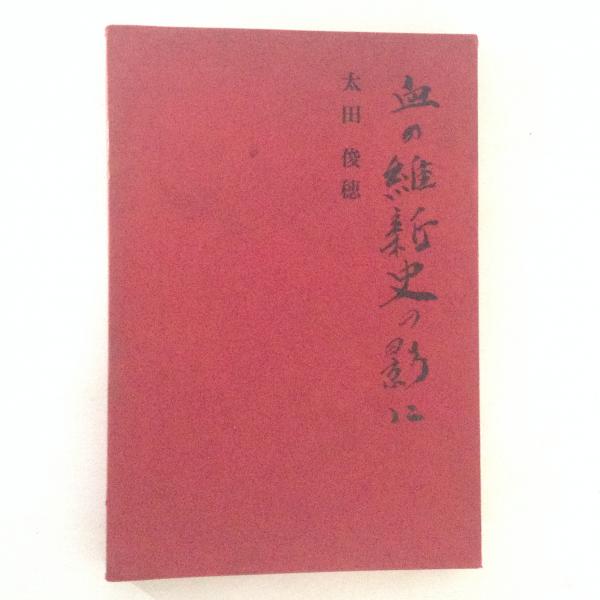 血の維新史の影に
太田俊穂